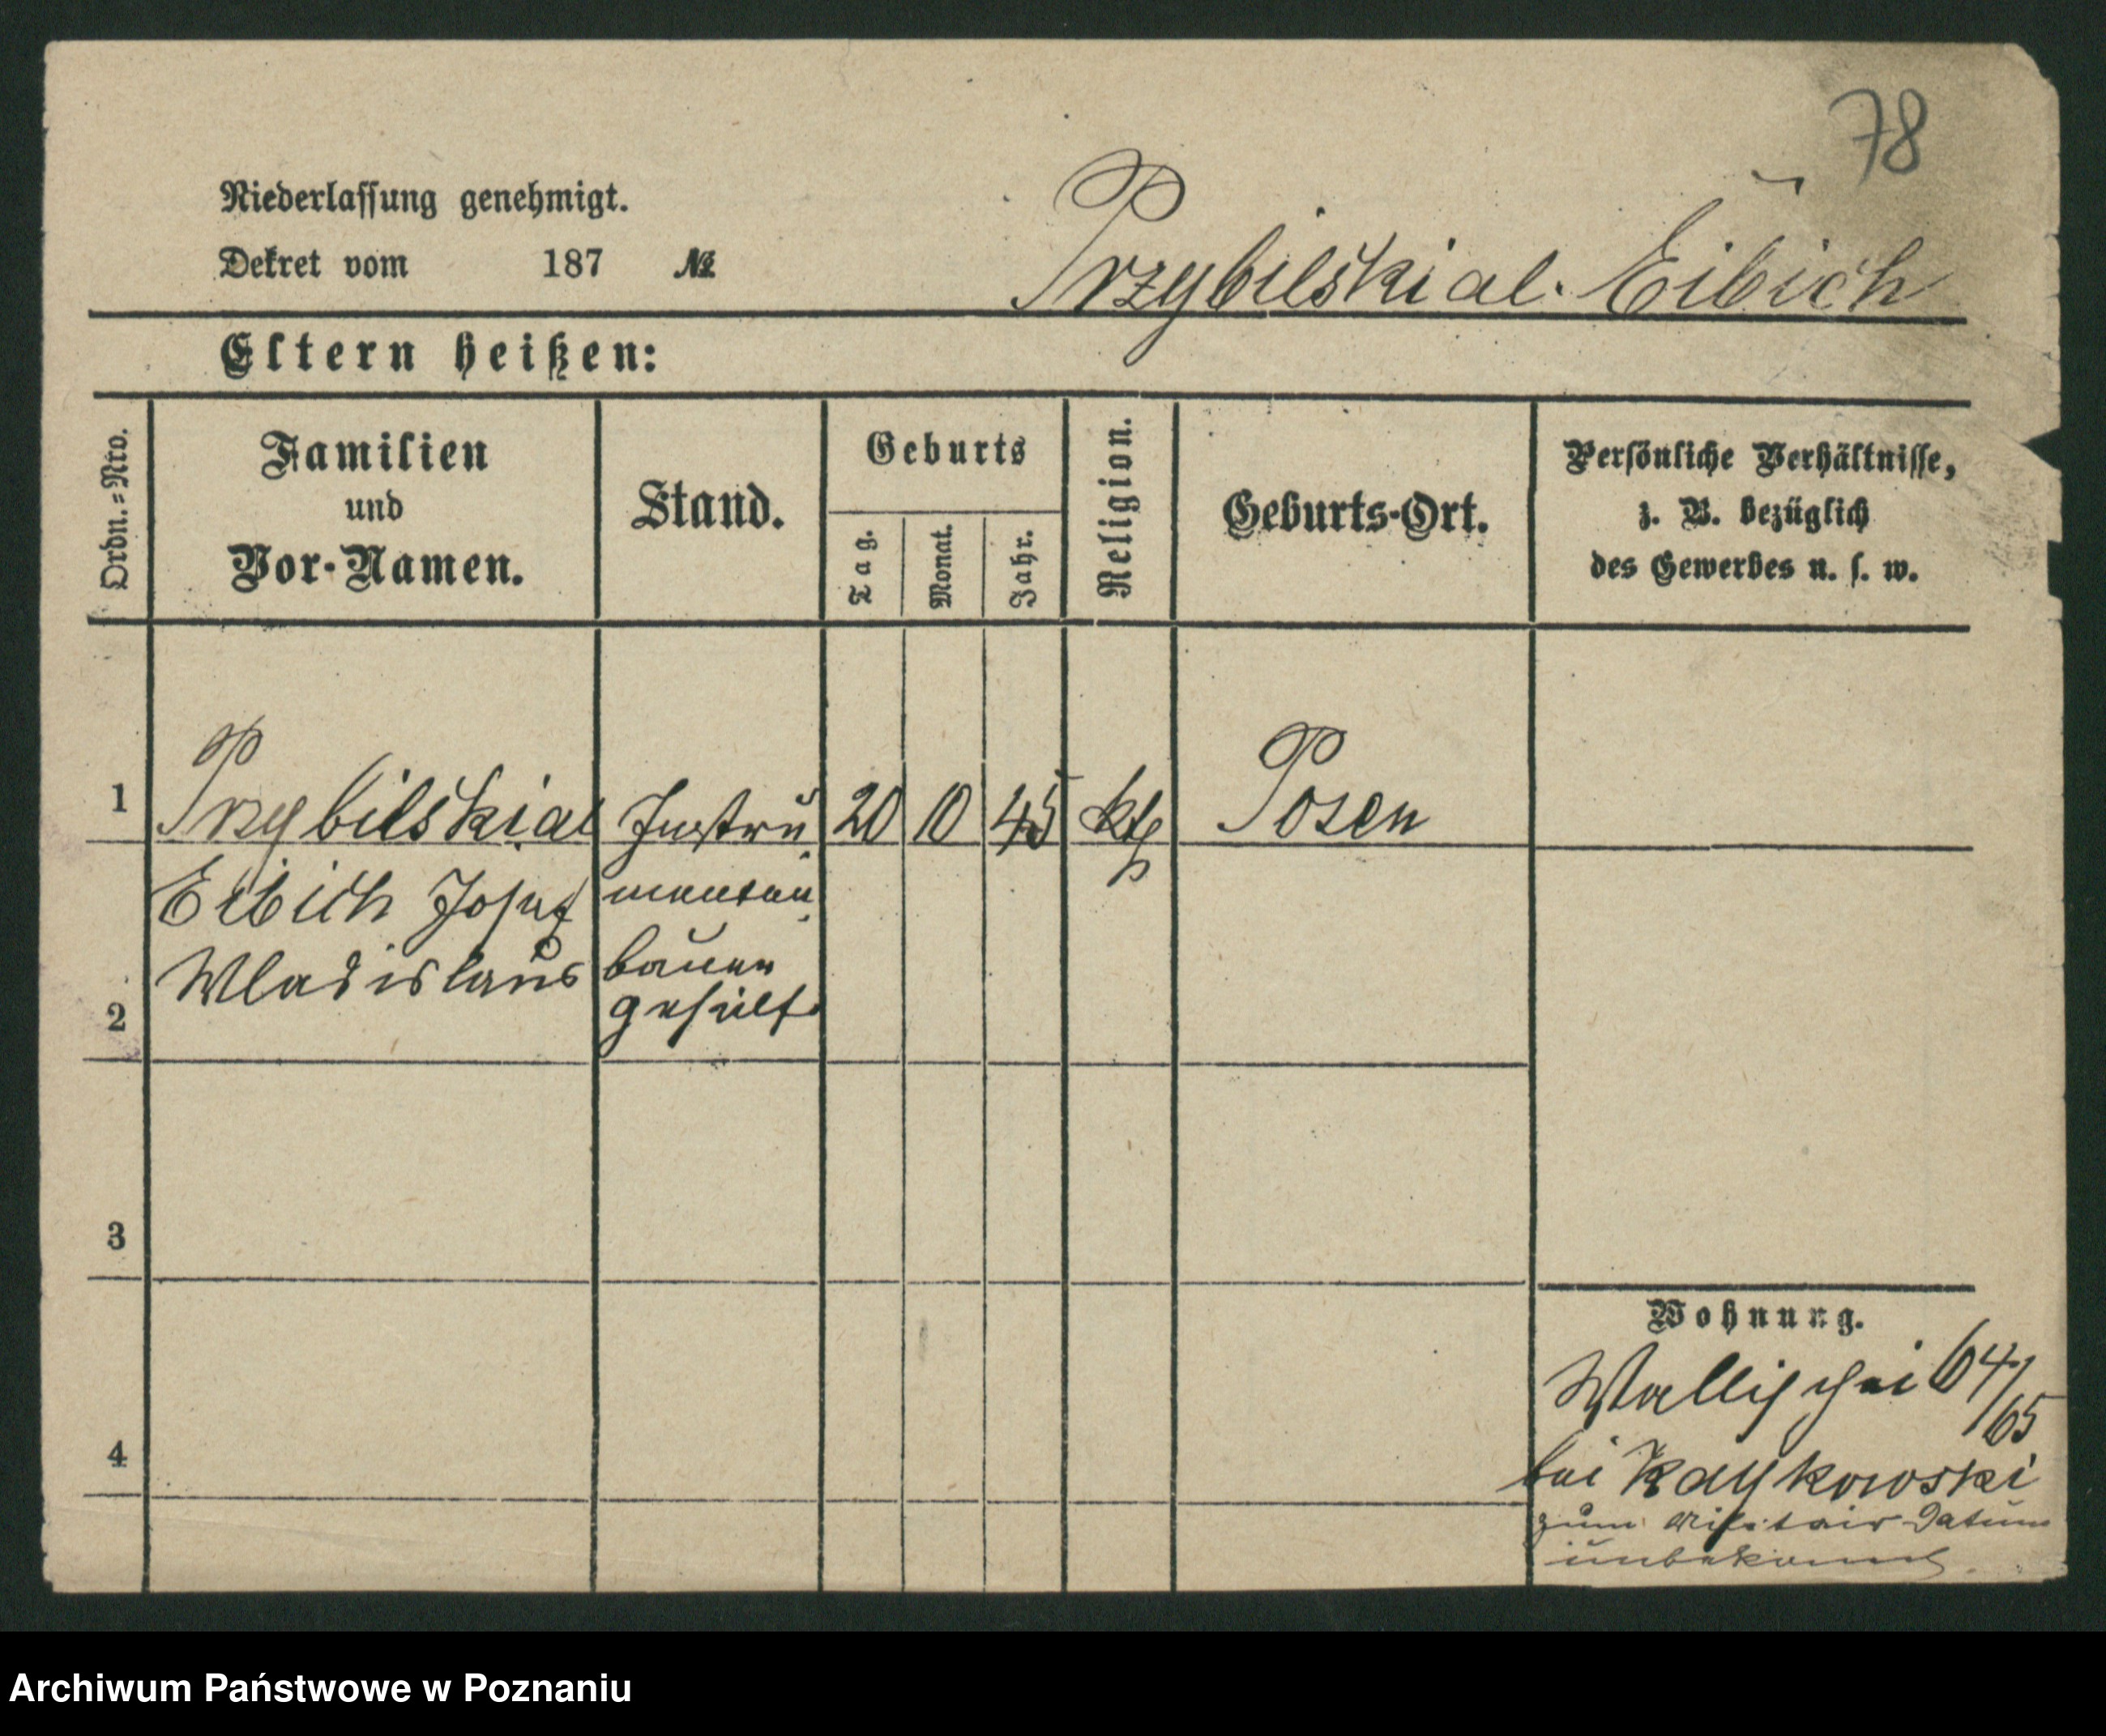 78
Niederlassung genehmigt.
Dekret vom 187 №
Przybilski al. Eibich
Eltern heißen:
Ordn.=Nro.
Familien
und
Vor-Namen.
Stand.
Geburts
Tag.
Monat.
Jahr.
Religion.
Geburts-Ort.
Persönliche Verhältnisse,
z. B. bezüglich
des Gewerbes u. s. w.
1
Przybilski al
Instru
20
10
45
kth
Posen
Eibich Josef
menten
Wladislaus
bauer
gehilfe
2
3
4
Wohnung.
Wallischei 64/
65
bei Kaykowski
zum Militair Datum
unbekannt.
Archiwum Państwowe w Poznaniu